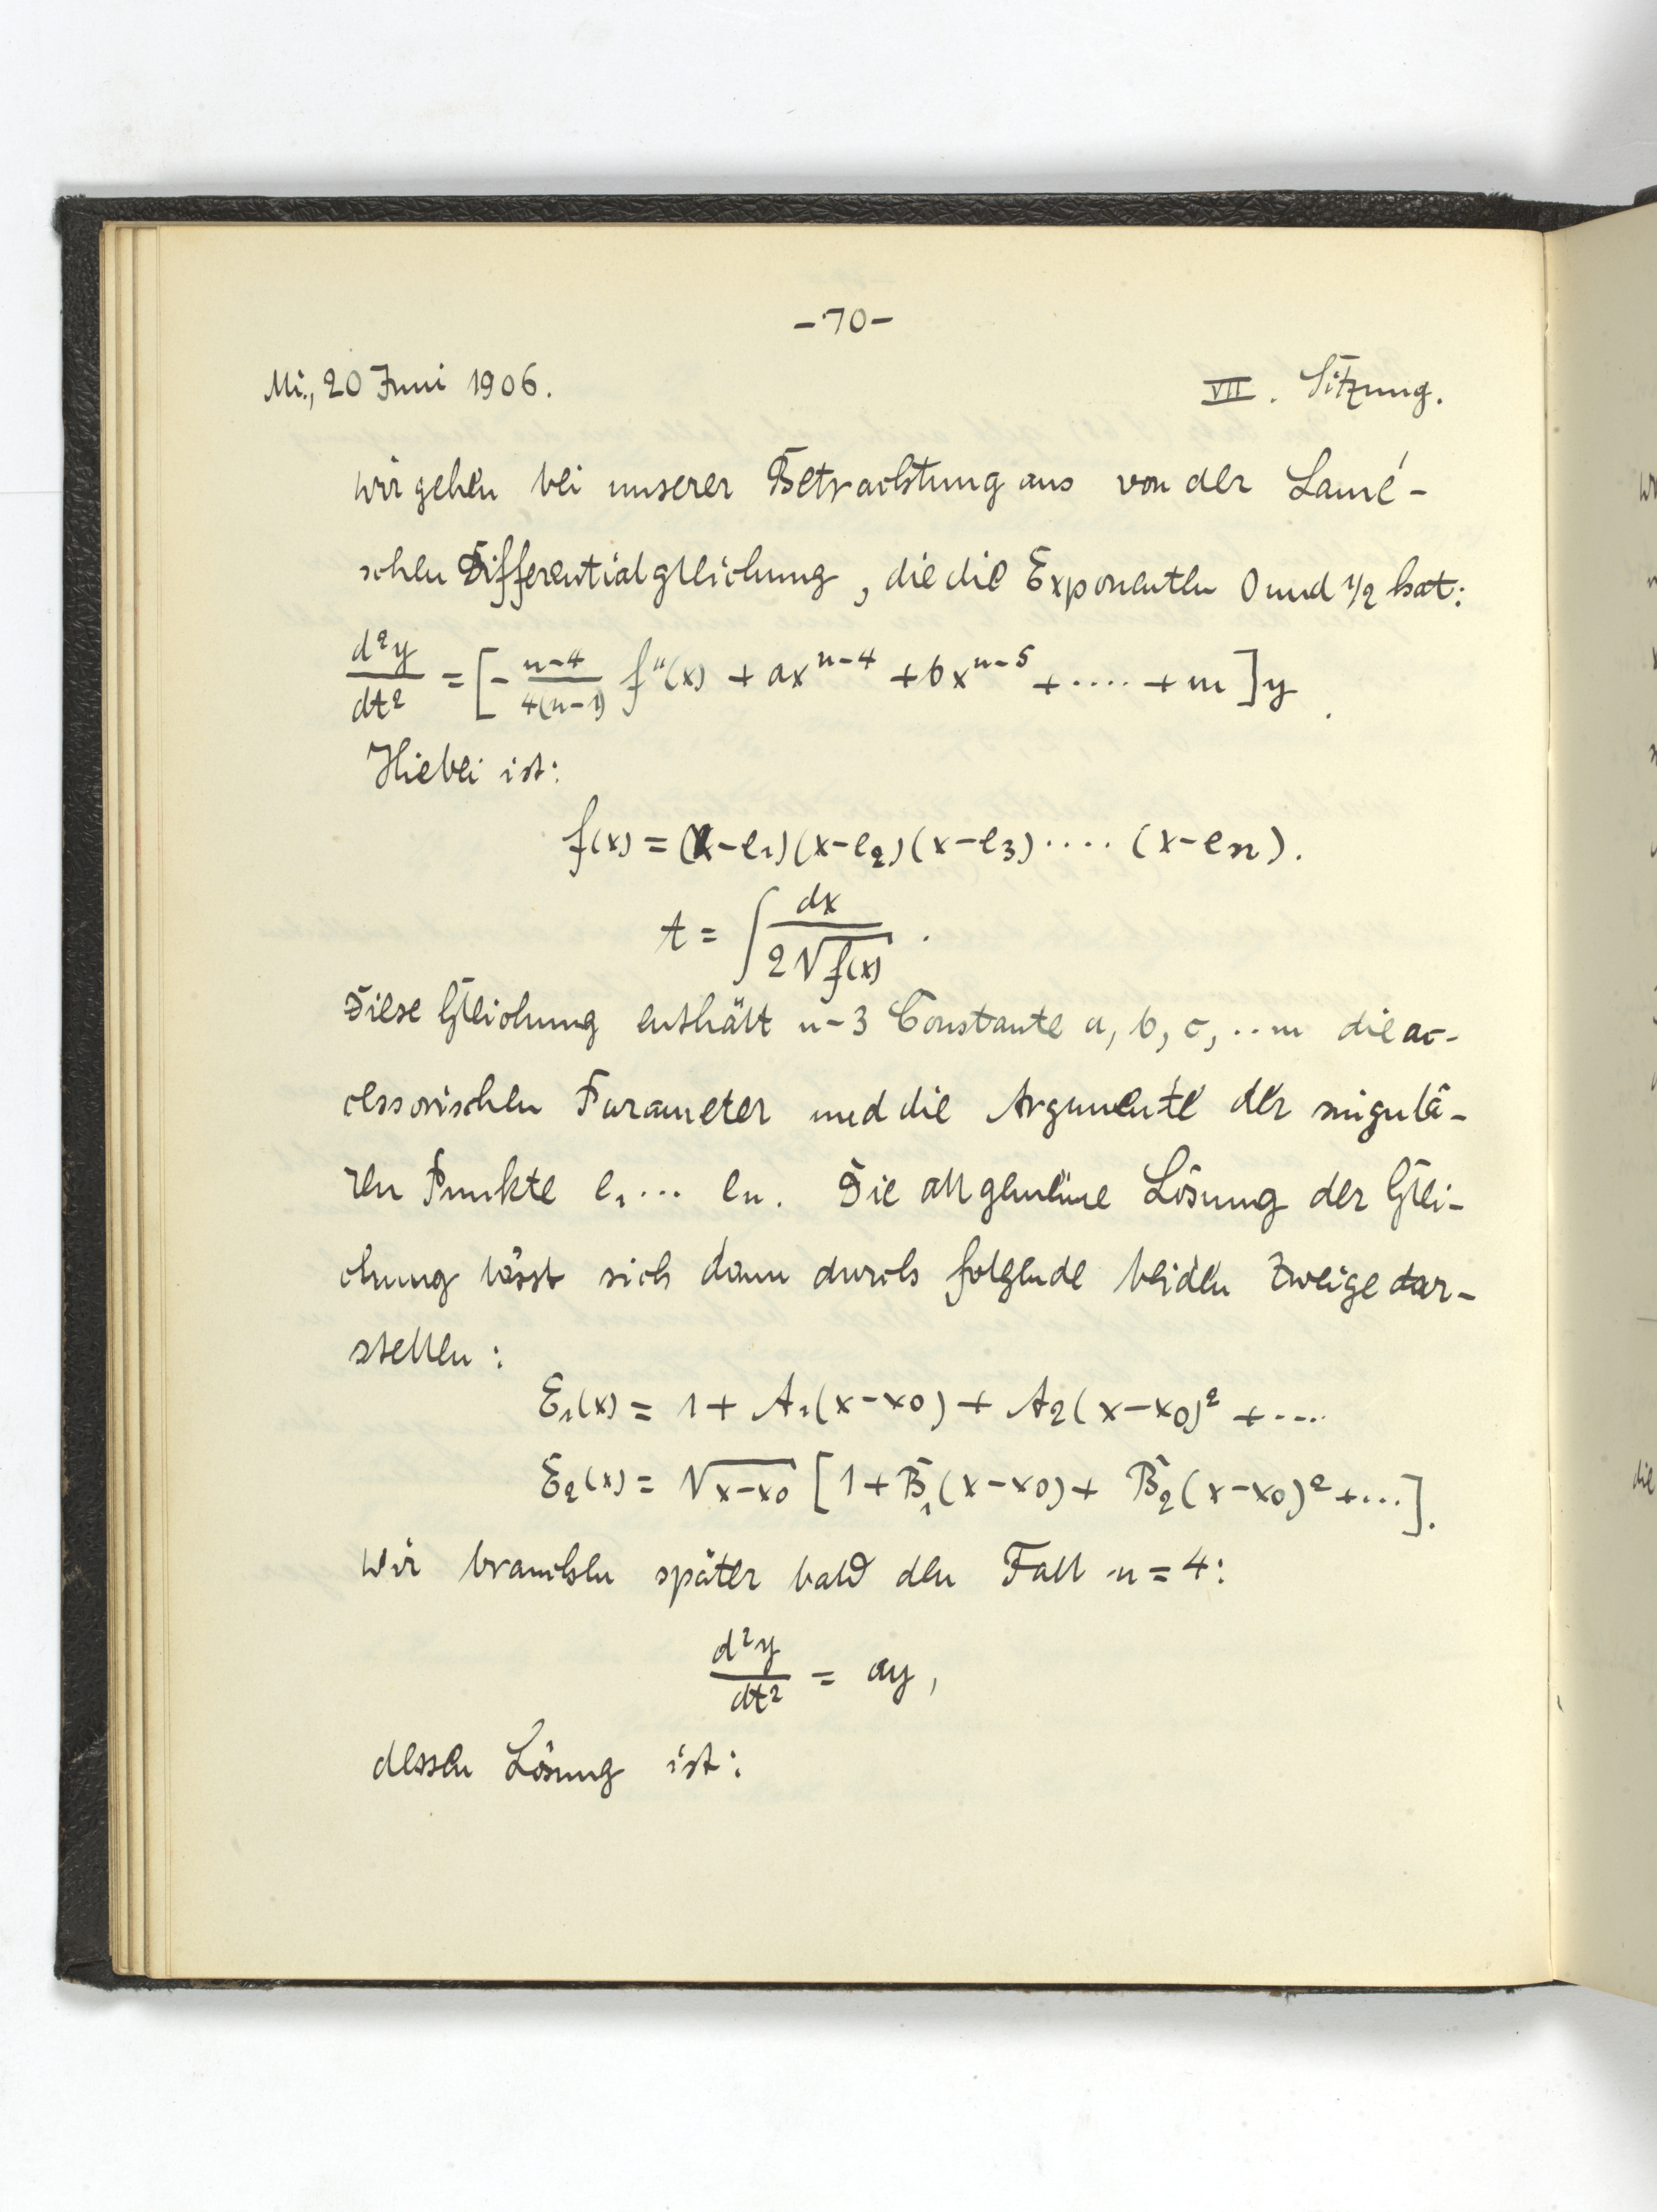 -70-
Mi., 20 Juni 1906. VII. Sitzung.
Wir gehen bei unserer Betrachtung aus von der Lamé-
schen Differentialgleichung, die die Exponenten 0 und 1/2 hat:
d²y/dt² = [- n-4/4(n-1) f''(x) + ax^{n-4} + bx^{n-5} + .... + m ] y .
Hiebei ist:
f(x) = (x-e₁)(x-e₂)(x-e₃) .... (x-eₙ).
t = ∫ dx/2√f(x) .
Diese Gleichung enthält n-3 Constante a, b, c, .. m die ac-
cessorischen Parameter und die Argumente der singulä-
ren Punkte e₁ ... eₙ. Die allgemeine Lösung der Glei-
chung lässt sich dann durch folgende beiden Zweige dar-
stellen:
E₁(x) = 1 + A₁(x-x₀) + A₂(x-x₀)² + ....
E₂(x) = √x-x₀ [1 + B₁(x-x₀) + B₂(x-x₀)² + ...].
Wir brauchen später bald den Fall n = 4:
d²y/dt² = ay,
dessen Lösung ist:
die